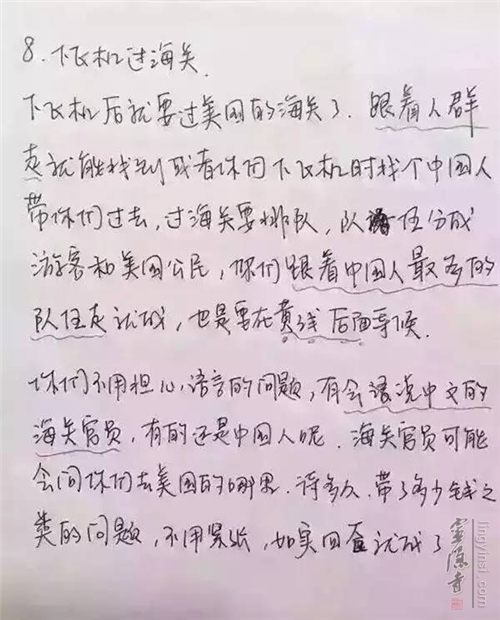 8.下飞机过海关.
下飞机后就要过美国的海关了.跟着人群
走就能找到或者你们下飞机时找个中国人
带你们过去,过海关要排队,队伍分成
游客和美国公民,你们跟着中国人最多的
队伍走就成,也是要在黄线后面等候.
你们不用担心语言的问题,有会说中文的
海关官员,有的还是中国人呢.海关官员可能
会问你们去美国的哪里.待多久.带了多少钱之
类的问题,不用紧张,如实回答就成了
lingyinsi.com